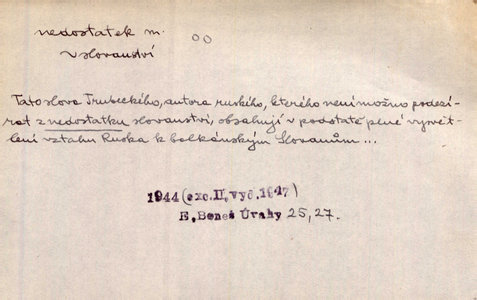 nedostatek m.
v slovanství
Tato slova Trubeckého, autora ruského, kterého není možno podezí-
rat z nedostatku slovanství, obsahují v podstatě plné vysvět-
lení vztahu Ruska k balkánským Slovanům...
1944 (exc. II. vyd. 1947)
E. Beneš Úvahy 25, 27.